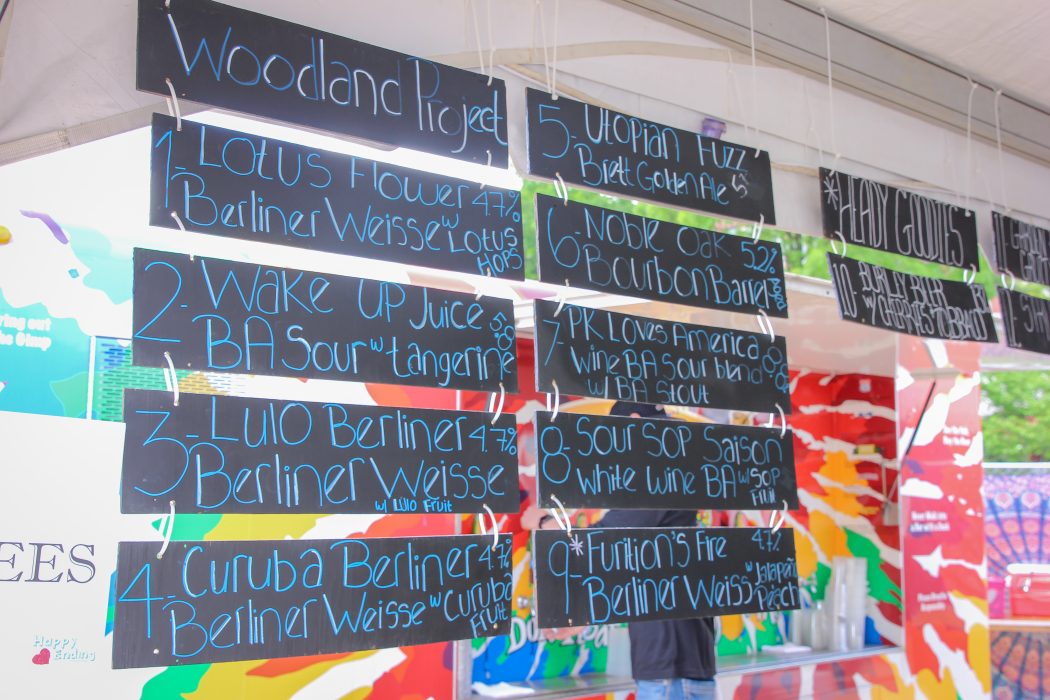 Woodland Project
1- Lotus Flower 4.7%
Berliner Weisse w Lotus
HOPS
2- Wake Up Juice
BA Sour w tangerine
3- Lulo Berliner 4.7%
Berliner Weisse
w/ Lulo Fruit
4- Curuba Berliner 4.7%
Berliner Weisse w Curuba
Fruit
5- Utopian Fuzz
Brett Golden Ale
6- Noble Oak 5.2%
Bourbon Barrel
7- PK Loves America
Wine BA Sour blend
w/ BA Stout
8- Sour SOP Saison
White Wine BA w/ SOP
Fruit
*9- Furition's Fire 4.7%
Berliner Weiss w Jalapeñ
Peach
*HEADY GOODIES
10.
EES
Happy
Ending